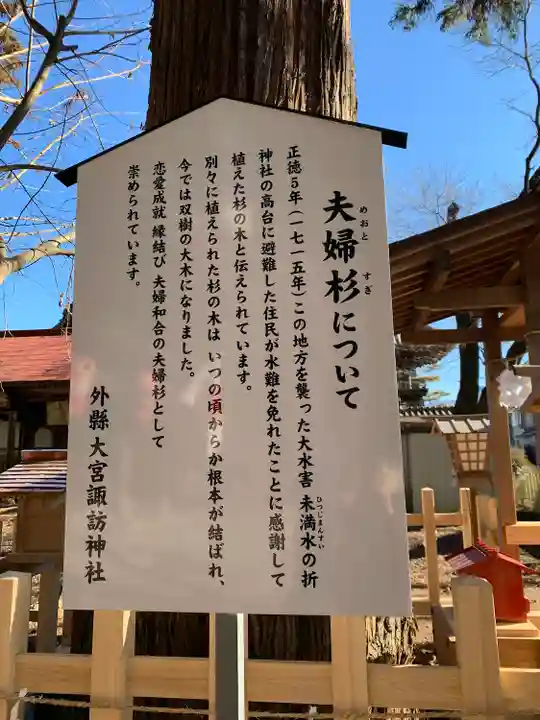 夫婦杉について
めおと すぎ
正徳5年(一七一五年)この地方を襲った大水害 未満水の折
ひつじまんすい
神社の高台に避難した住民が水難を免れたことに感謝して
植えた杉の木と伝えられています。
別々に植えられた杉の木は いつの頃からか根本が結ばれ、
今では双樹の大木になりました。
恋愛成就 縁結び 夫婦和合の夫婦杉として
崇められています。
外縣大宮諏訪神社